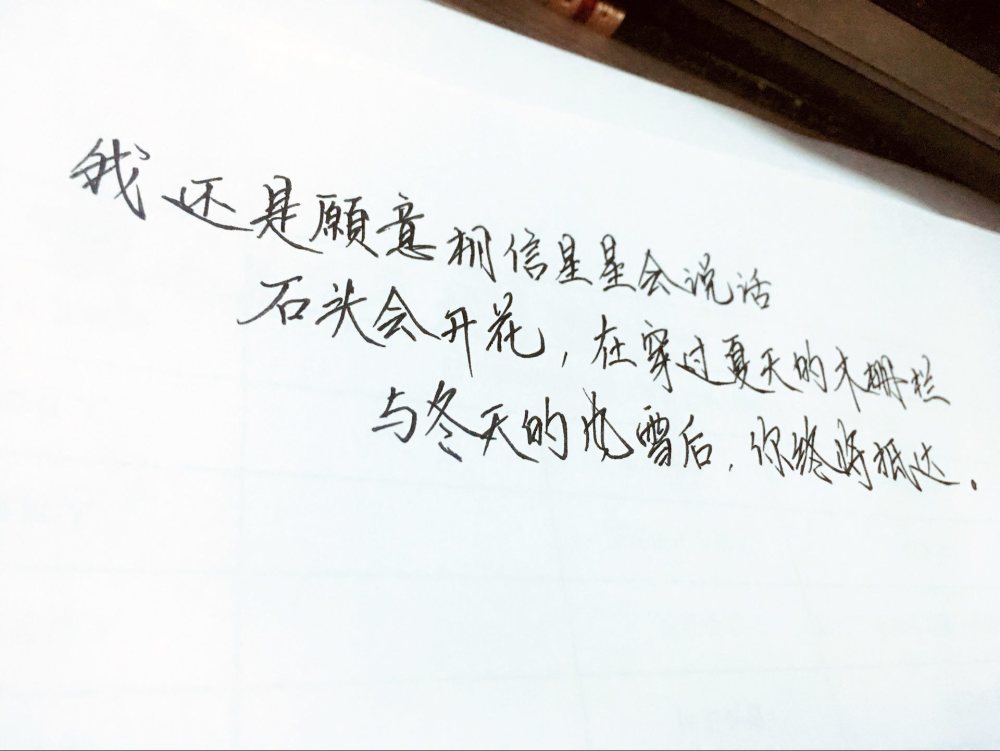 我还是願意相信星星会说话
石头会开花,在穿过夏天的木栅栏
与冬天的风雪后,你终将抵达.